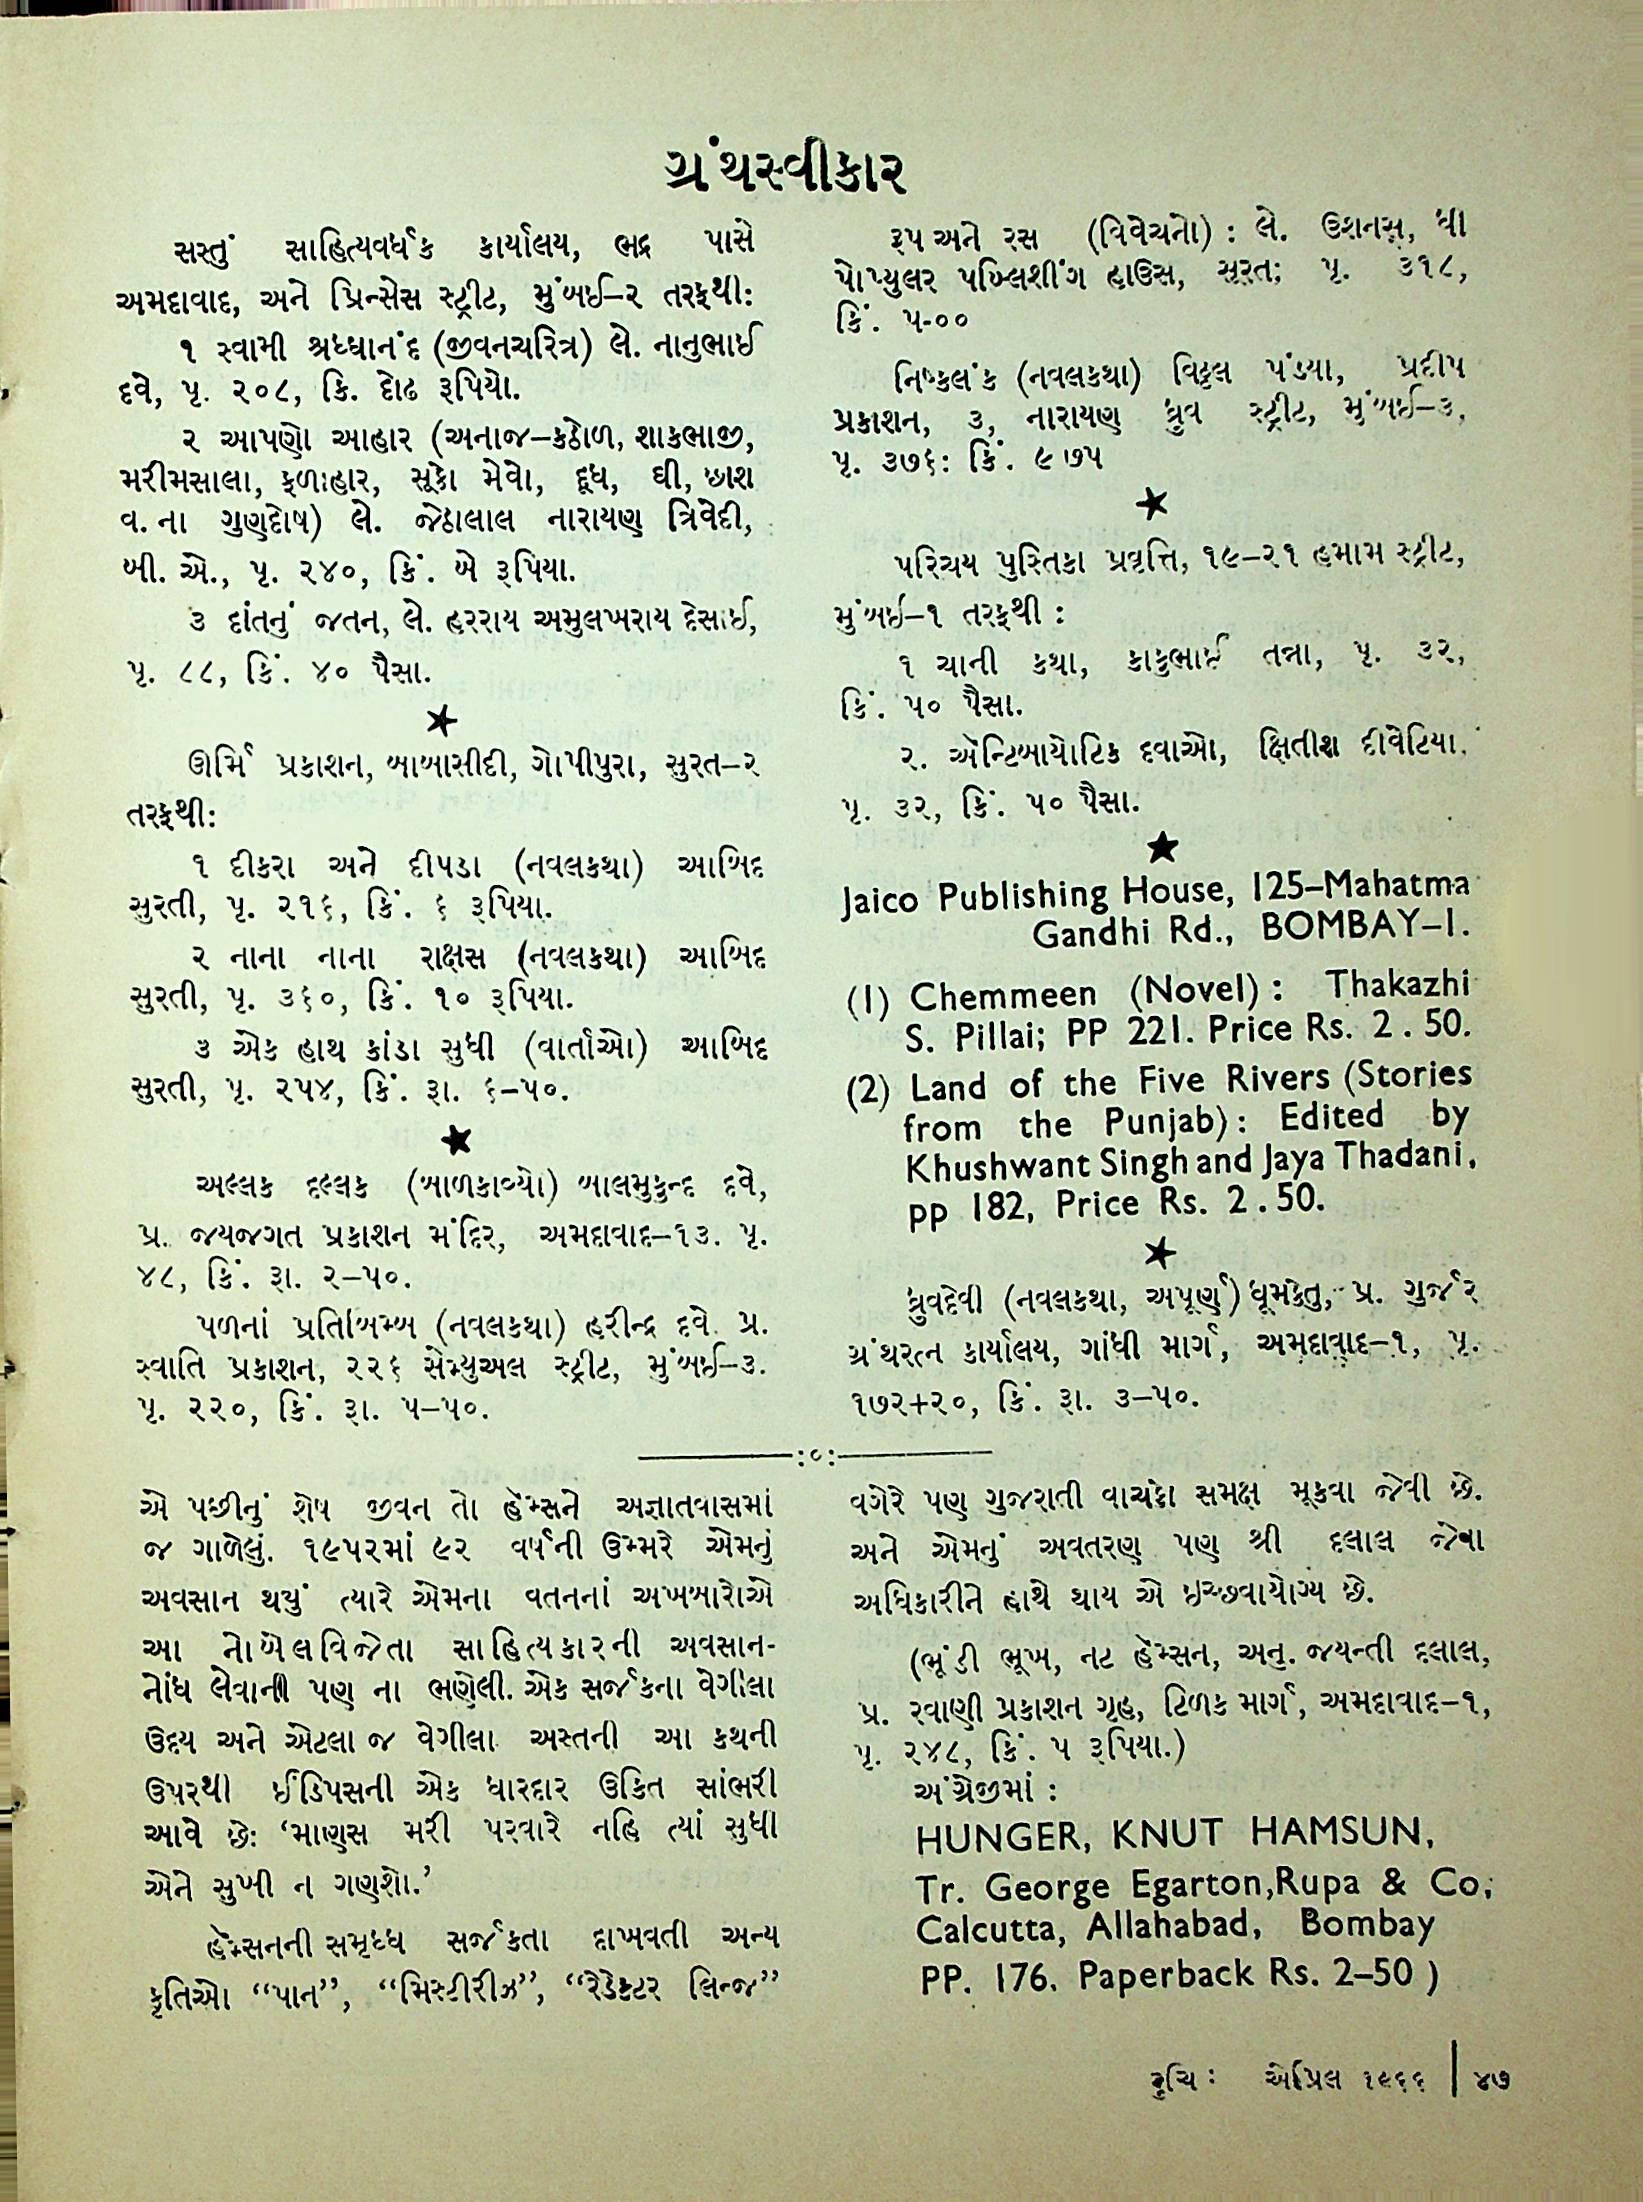 ગ્રંથસ્વીકાર
સસ્તું સાહિત્યવર્ધક કાર્યાલય, ભદ્ર પાસે
અમદાવાદ, અને પ્રિન્સેસ સ્ટ્રીટ, મુંબઈ–૨ તરફથી:
૧ સ્વામી શ્રધ્ધાનંદ (જીવનચરિત્ર) લે. નાનુભાઈ
દવે, પૃ. ૨૦૮, કિ. દોઢ રૂપિયો.
૨ આપણો આહાર (અનાજ–કઠોળ, શાકભાજી,
મરીમસાલા, ફળાહાર, સૂકો મેવો, દૂધ, ઘી, છાશ
વ. ના ગુણદોષ) લે. જેઠાલાલ નારાયણ ત્રિવેદી,
બી. એ., પૃ. ૨૪૦, કિં. બે રૂપિયા.
૩ દાંતનું જતન, લે. હરરાય અમુલખરાય દેસાઈ,
પૃ. ૮૮, કિં. ૪૦ પૈસા.
★
ઊર્મિ પ્રકાશન, બાબાસીદી, ગોપીપુરા, સુરત–૨
તરફથી:
૧ દીકરા અને દીપડા (નવલકથા) આબિદ
સુરતી, પૃ. ૨૧૬, કિં. ૬ રૂપિયા.
૨ નાના નાના રાક્ષસ (નવલકથા) આબિદ
સુરતી, પૃ. ૩૬૦, કિં. ૧૦ રૂપિયા.
૩ એક હાથ કાંડા સુધી (વાર્તાઓ) આબિદ
સુરતી, પૃ. ૨૫૪, કિં. રૂા. ૬–૫૦.
★
અલ્લક દલ્લક (બાળકાવ્યો) બાલમુકુન્દ દવે,
પ્ર. જયજગત પ્રકાશન મંદિર, અમદાવાદ–૧૩. પૃ.
૪૮, કિં. રૂા. ૨–૫૦.
પળનાં પ્રતિબિમ્બ (નવલકથા) હરીન્દ્ર દવે. પ્ર.
સ્વાતિ પ્રકાશન, ૨૨૬ સેમ્યુઅલ સ્ટ્રીટ, મુંબઈ–૩.
પૃ. ૨૨૦, કિં. રૂા. ૫–૫૦.
રૂપ અને રસ (વિવેચનો) : લે. ઉશનસ્, ધી
પોપ્યુલર પબ્લિશીંગ હાઉસ, સૂરત; પૃ. ૩૧૮,
કિં. ૫-૦૦
નિષ્કલંક (નવલકથા) વિઠ્ઠલ પંડયા, પ્રદીપ
પ્રકાશન, ૩, નારાયણ ધ્રુવ સ્ટ્રીટ, મુંબઈ–૩,
પૃ. ૩૭૬: કિં. ૯ ૭૫
★
પરિચય પુસ્તિકા પ્રવૃત્તિ, ૧૯–૨૧ હમામ સ્ટ્રીટ,
મુંબઇ–૧ તરફથી :
૧ ચાની કથા, કાકુભાઈ તન્ના, પૃ. ૩૨,
કિં. ૫૦ પૈસા.
૨. ઍન્ટિબાયોટિક દવાઓ, ક્ષિતીશ દીવેટિયા.
પૃ. ૩૨, કિં. ૫૦ પૈસા.
★
Jaico Publishing House, 125–Mahatma
Gandhi Rd., BOMBAY–1.
(1) Chemmeen (Novel) : Thakazhi
S. Pillai; PP 221. Price Rs. 2 . 50.
(2) Land of the Five Rivers (Stories
from the Punjab) : Edited by
Khushwant Singh and Jaya Thadani,
pp 182, Price Rs. 2 . 50.
★
ધ્રુવદેવી (નવલકથા, અપૂર્ણ) ધૂમકેતુ, પ્ર. ગુર્જર
ગ્રંથરત્ન કાર્યાલય, ગાંધી માર્ગ, અમદાવાદ–૧, પૃ.
૧૭૨+૨૦, કિં. રૂા. ૩–૫૦.
:૦:
એ પછીનું શેષ જીવન તો હૅમ્સને અજ્ઞાતવાસમાં
જ ગાળેલું. ૧૯૫૨માં ૯૨ વર્ષની ઉમ્મરે એમનું
અવસાન થયું ત્યારે એમના વતનનાં અખબારોએ
આ નોબેલવિજેતા સાહિત્યકારની અવસાન-
નોંધ લેવાની પણ ના ભણેલી. એક સર્જકના વેગીલા
ઉદય અને એટલા જ વેગીલા અસ્તની આ કથની
ઉપરથી ઈડિપસની એક ધારદાર ઉકિત સાંભરી
આવે છે: ‘માણસ મરી પરવારે નહિ ત્યાં સુધી
એને સુખી ન ગણશો.’
હૅમ્સનની સમૃધ્ધ સર્જકતા દાખવતી અન્ય
કૃતિઓ “પાન”, “મિસ્ટીરીઝ”, “રેડેક્ટર લિન્જ”
વગેરે પણ ગુજરાતી વાચકો સમક્ષ મૂકવા જેવી છે.
અને એમનું અવતરણ પણ શ્રી દલાલ જેવા
અધિકારીને હાથે થાય એ ઇચ્છવાયોગ્ય છે.
(ભૂંડી ભૂખ, નટ હૅમ્સન, અનુ. જયન્તી દલાલ,
પ્ર. રવાણી પ્રકાશન ગૃહ, ટિળક માર્ગ, અમદાવાદ–૧,
પૃ. ૨૪૮, કિં. ૫ રૂપિયા.)
અંગ્રેજીમાં :
HUNGER, KNUT HAMSUN,
Tr. George Egarton,Rupa & Co,
Calcutta, Allahabad, Bombay
PP. 176. Paperback Rs. 2–50 )
રુચિ : એપ્રિલ ૧૯૬૬ | ૪૭